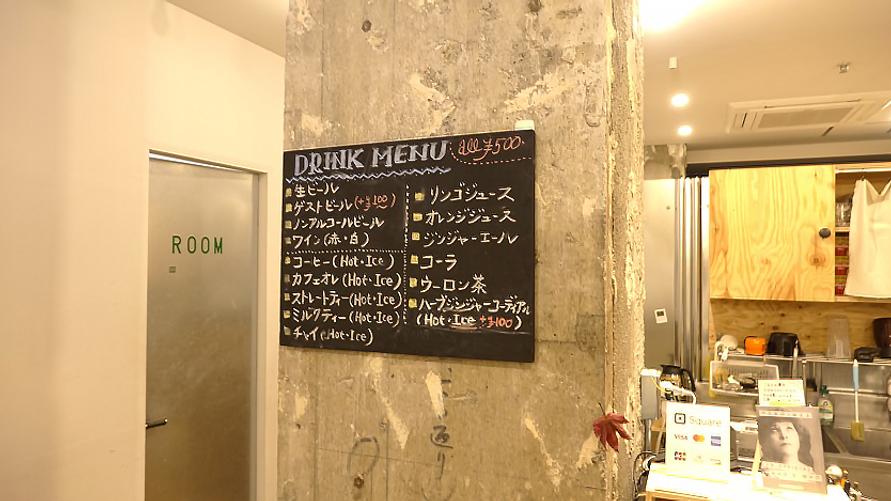 DRINK MENU all ¥500
生ビール
ゲストビール(+¥100)
ノンアルコールビール
ワイン(赤・白)
コーヒー(Hot・Ice)
カフェオレ(Hot・Ice)
ストレートティー(Hot・Ice)
ミルクティー(Hot・Ice)
チャイ(Hot・Ice)
リンゴジュース
オレンジジュース
ジンジャーエール
コーラ
ウーロン茶
ハーブジンジャーコーディアル
(Hot・Ice +¥100)
ROOM
Square
VISA
JCB